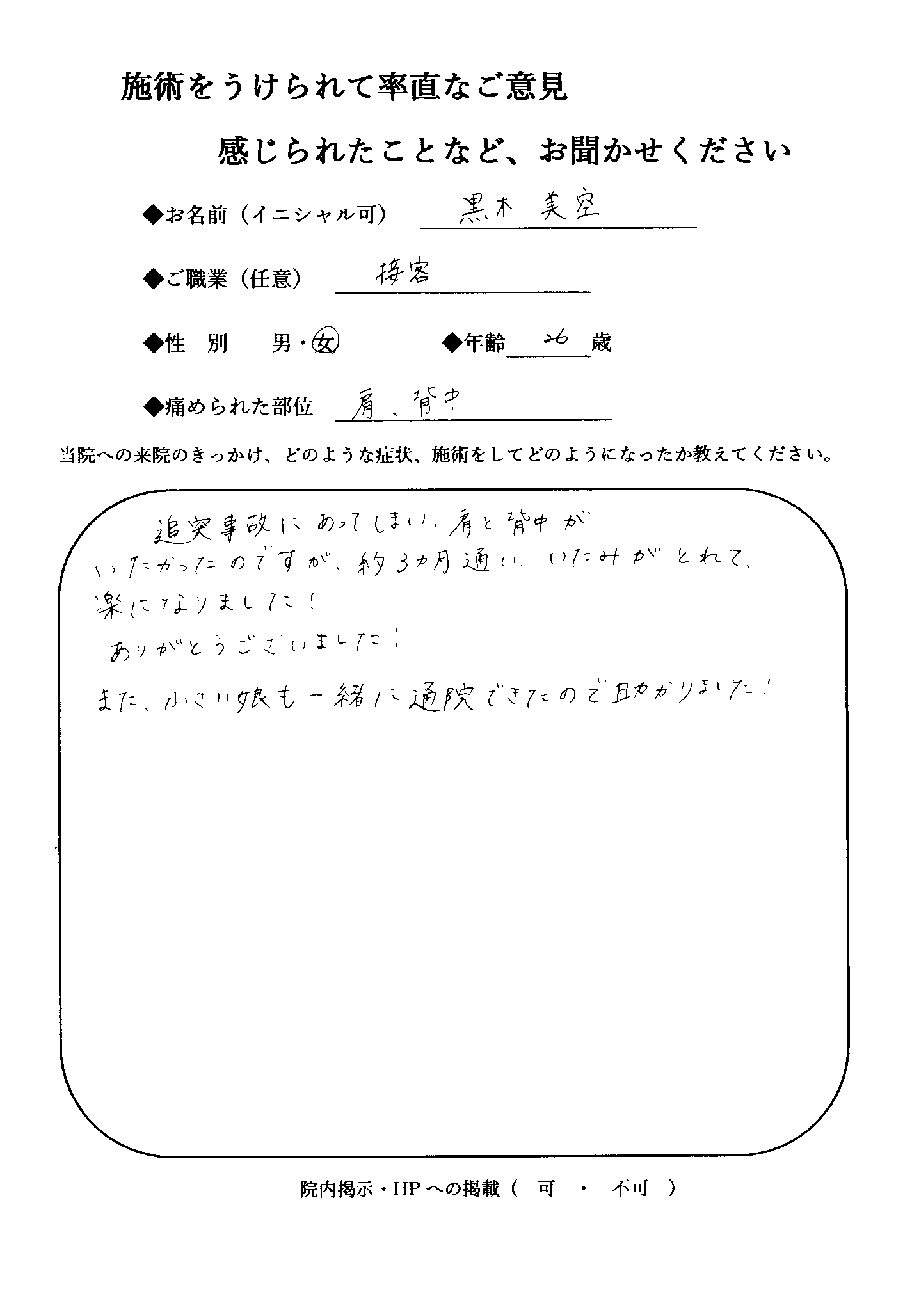 施術をうけられて率直なご意見
感じられたことなど、お聞かせください
◆お名前（イニシャル可） 黒木 美空
◆ご職業（任意） 接客
◆性 別 男・女 ◆年齢 26 歳
◆痛められた部位 肩、背中
当院への来院のきっかけ、どのような症状、施術をしてどのようになったか教えてください。
追突事故にあってしまい、肩と背中が
いたかったのですが、約3カ月通い、いたみがとれて、
楽になりました！
ありがとうございました！
また、小さい娘も一緒に通院できたので助かりました！
院内掲示・HPへの掲載（ 可 ・ 不可 ）